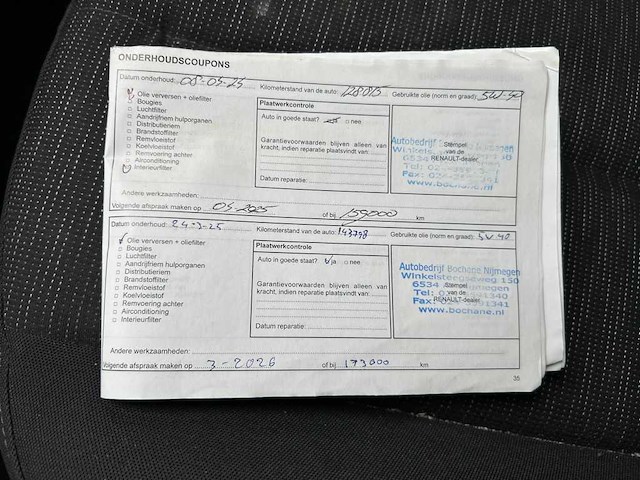 ONDERHOUDSCOUPONS
Datum onderhoud: 08-05-25 Kilometerstand van de auto: Gebruikte olie (norm en graad): 5W-40
Olie verversen + oliefilter
Bougies
Luchtfilter
Aandrijfriem hulporganen
Distributieriem
Brandstoffilter
Remvloeistof
Koelvloeistof
Remvoering achter
Airconditioning
Interieurfilter
Plaatwerkcontrole
Auto in goede staat? nee
Garantievoorwaarden blijven alleen van kracht, indien reparatie plaatsvindt van:
Datum reparatie:
Autobedrijf
Stempel van de RENAULT-dealer
6534
Fax:
www.bochane.nl
Andere werkzaamheden:
Volgende afspraak maken op 05-2025 of bij 159000 km
Datum onderhoud: 24-3-25 Kilometerstand van de auto: 143748 Gebruikte olie (norm en graad): 5W40
Olie verversen + oliefilter
Bougies
Luchtfilter
Aandrijfriem hulporganen
Distributieriem
Brandstoffilter
Remvloeistof
Koelvloeistof
Remvoering achter
Airconditioning
Interieurfilter
Plaatwerkcontrole
Auto in goede staat? ja nee
Garantievoorwaarden blijven alleen van kracht, indien reparatie plaatsvindt van:
Datum reparatie:
Autobedrijf Bochane Nijmegen
Winkelsteegseweg 150
6534 Nijmegen
Stempel van de RENAULT-dealer
Tel:
Fax:
www.bochane.nl
Andere werkzaamheden:
Volgende afspraak maken op 3-2026 of bij 173000 km
35